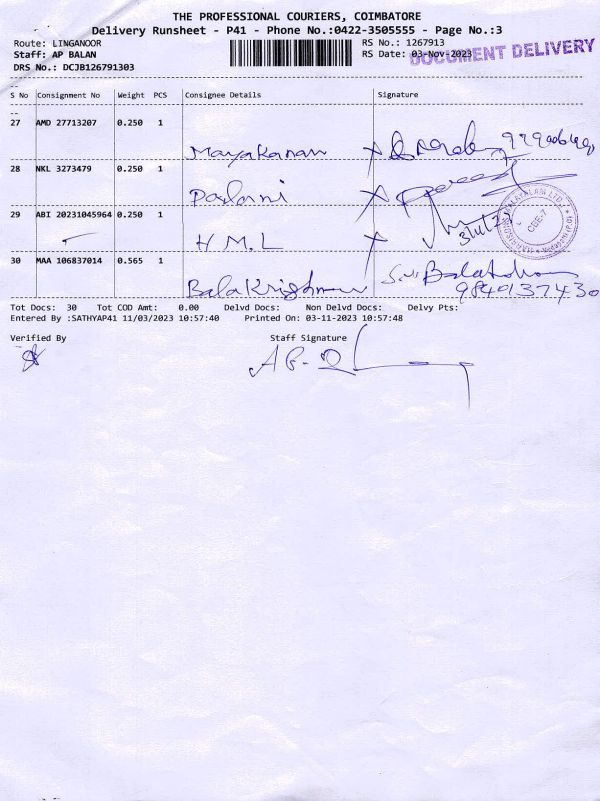 THE PROFESSIONAL COURIERS, COIMBATORE
Delivery Runsheet - P41 - Phone No.:0422-3505555 - Page No.:3
Route: LINGANOOR RS No.: 1267913
Staff: AP BALAN RS Date: 03-Nov-2023 DOCUMENT DELIVERY
DRS No.: DCJB126791303
S No Consignment No Weight PCS Consignee Details Signature
27 AMD 27713207 0.250 1
Mayakanan
28 NKL 3273479 0.250 1
29 ABI 20231045964 0.250 1
H M L
30 MAA 106837014 0.565 1
BalaKrishnan 9840137430
Tot Docs: 30 Tot COD Amt: 0.00 Delvd Docs: Non Delvd Docs: Delvy Pts:
Entered By :SATHYAP41 11/03/2023 10:57:40 Printed On: 03-11-2023 10:57:48
Verified By Staff Signature